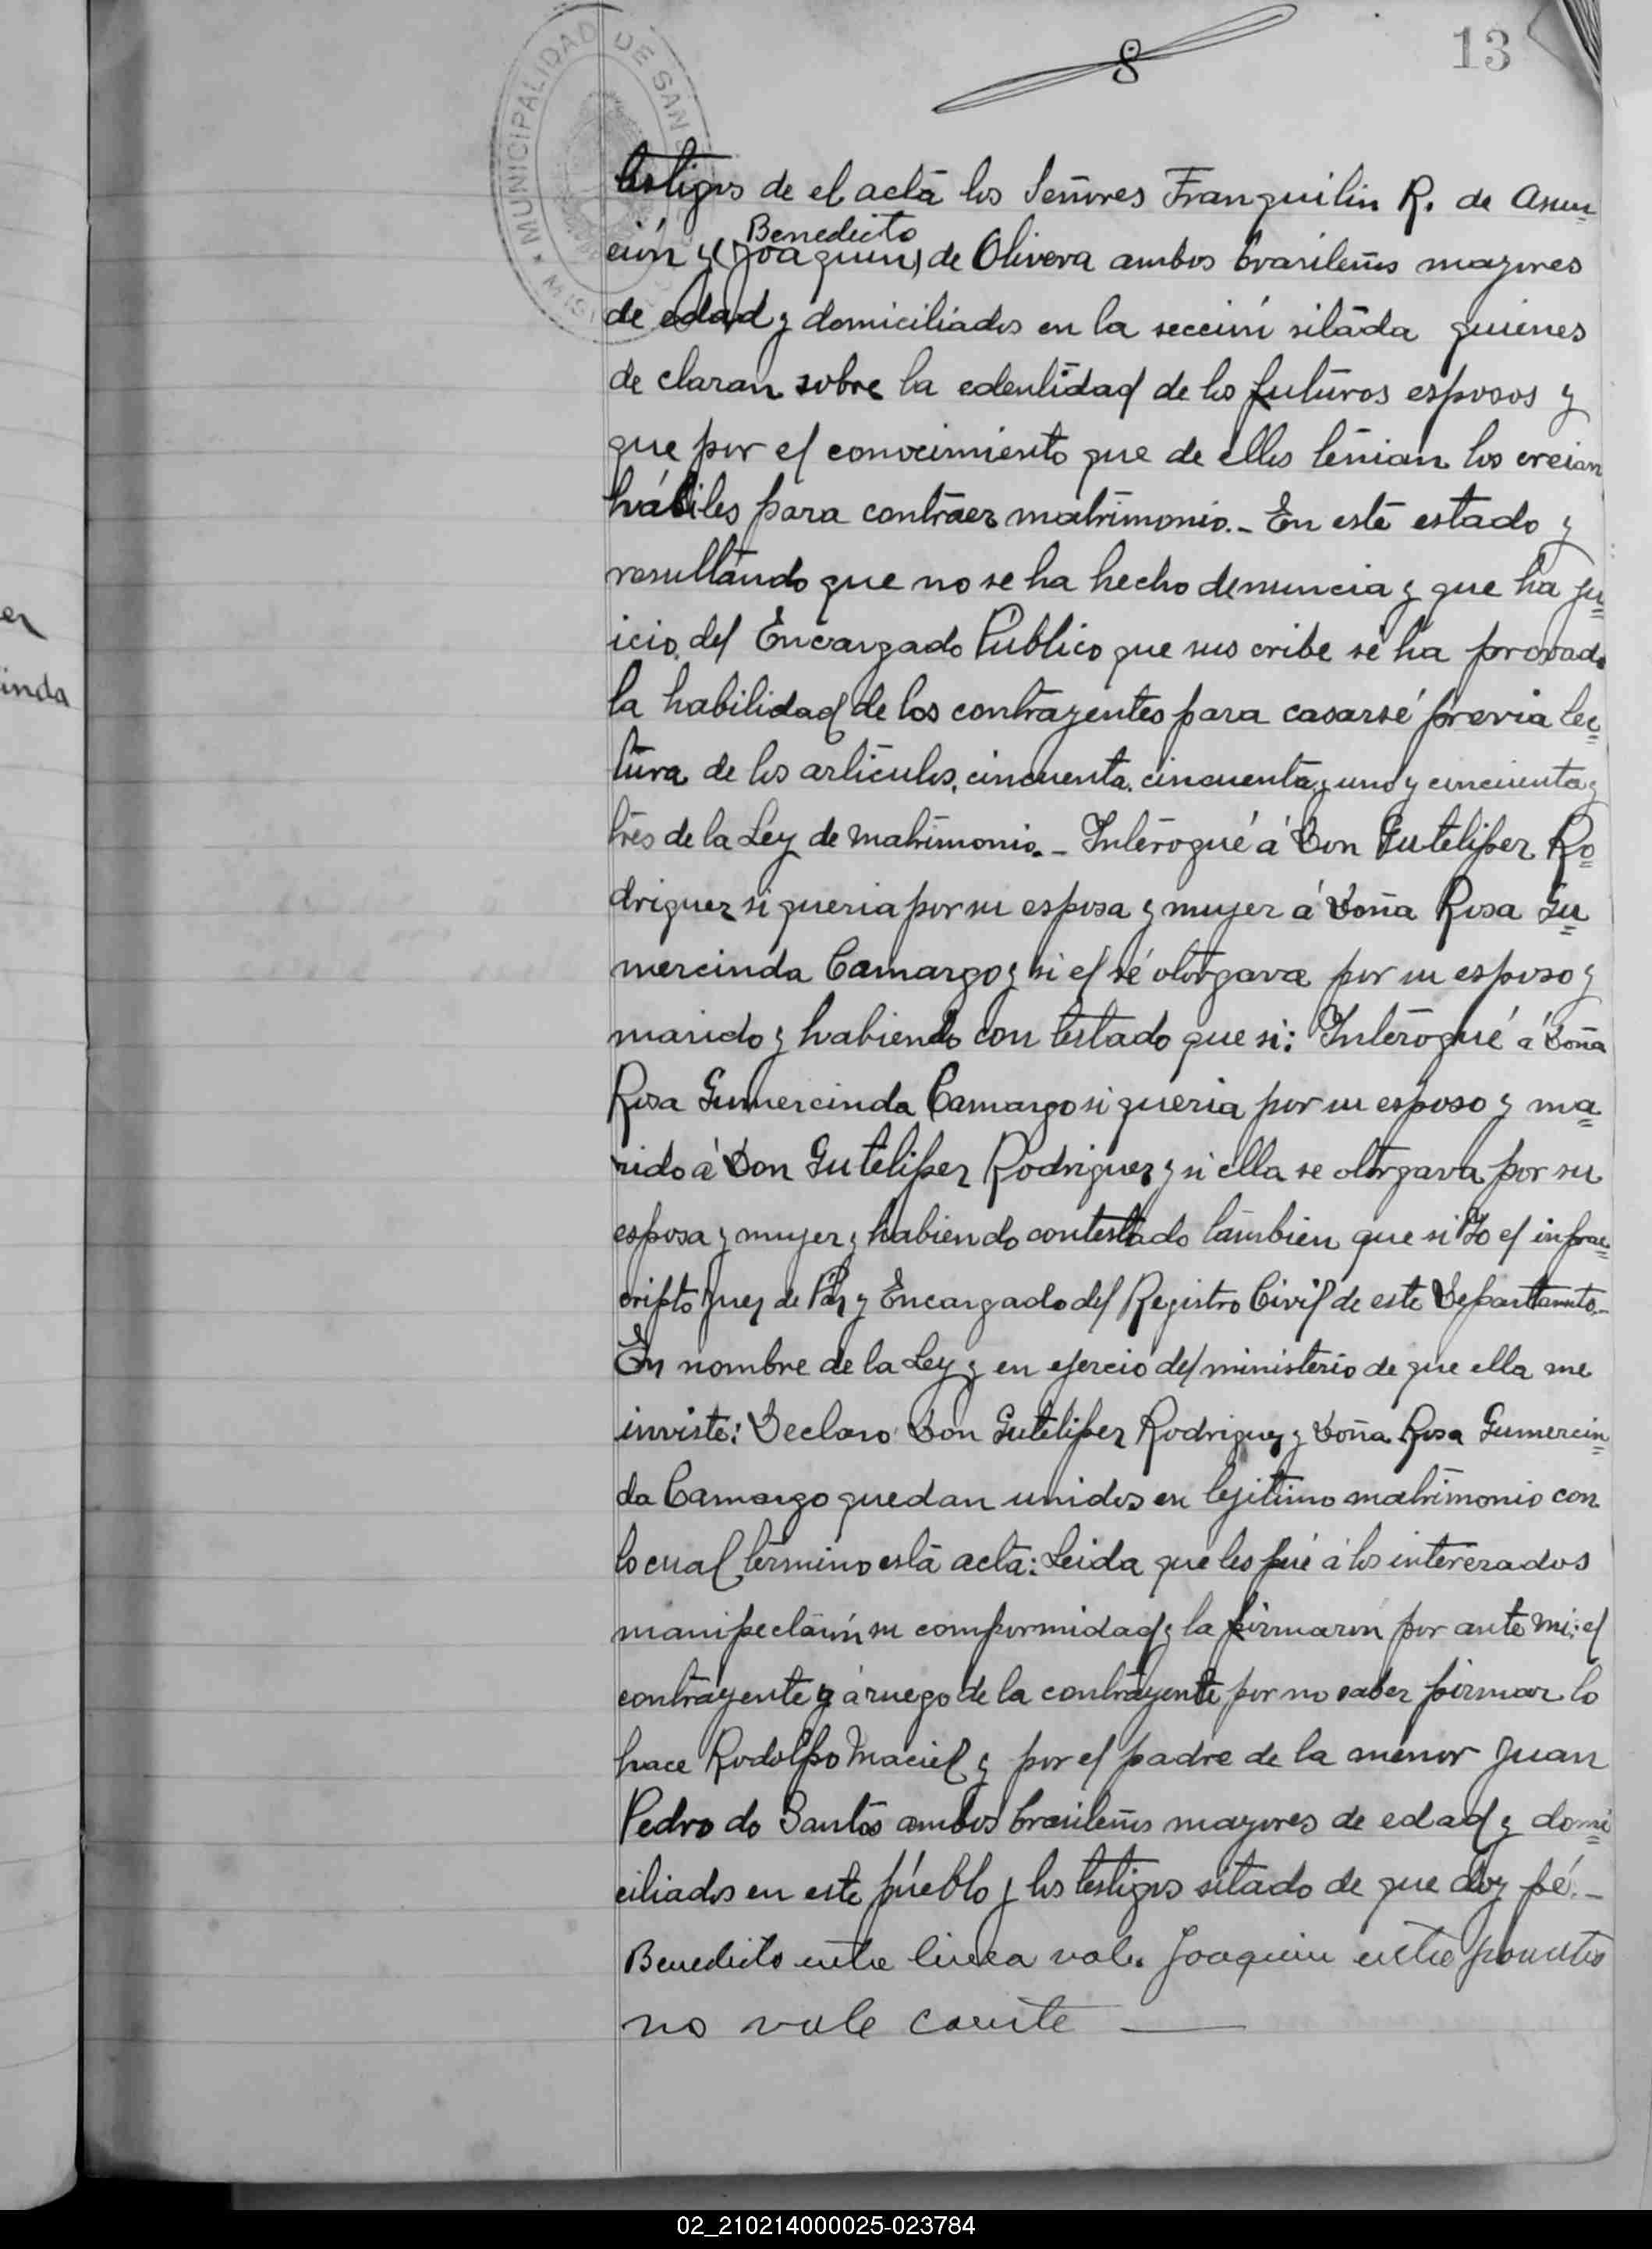 8
13
MUNICIPALIDAD DE SAN
testigos de el acta los Señores Franquilin R. de Asun=
Benedicto
ción y (Joaquin) de Olivera ambos brasileños mayores
de edad y domiciliados en la sección sitada quienes
de claran sobre la edentidad de los futuros esposos y
que por el conocimiento que de ellos tenian los creian
hábiles para contraer matrimonio.- En este estado y
resultando que no se ha hecho denuncia y que ha ju=
icio del Encargado Público que sus cribe se ha provado
la habilidad de los contrayentes para casarsé previa lec=
tura de los articulos, cincuenta, cincuenta y uno y cincuenta y
tres de la Ley de matrimonio.- Interogué á Don Gutelifer Ro=
driguez si queria por su esposa y mujer á Doña Rosa Gu=
mercinda Camargo y si el sé otorgava por su esposo y
marido y habiendo con testado que si: Interogué á Doña
Rosa Gumercinda Camargo si queria por su esposo y ma=
rido á Don Gutelifer Rodriguez y si ella se otorgava por su
esposa y mujer y habiendo contestado tambien que si Yo el infrac=
cripto Juez de Páz y Encargado del Registro Civil de este Departamento.-
En nombre de la Ley y en ejercio del ministerio de que ella me
inviste: Declaro Don Gutelifer Rodriguez y Doña Rosa Gumercin=
da Camargo quedan unidos en lejitimo matrimonio con
lo cual termino esta acta: Leida que les fué á los interezados
manifectarón su comformidad y la firmarón por ante mi: el
contrayente y á ruego de la contrayente por no saber firmar lo
hace Rodolfo Maciel y por el padre de la menor Juan
Pedro do Santos ambos brasileños mayores de edad y domi=
ciliados en este púeblo y los testigos sitado de que doy fé.-
Benedicto entre linea vale. Joaquin entre
no vale conste —
er
inda
02_210214000025-023784